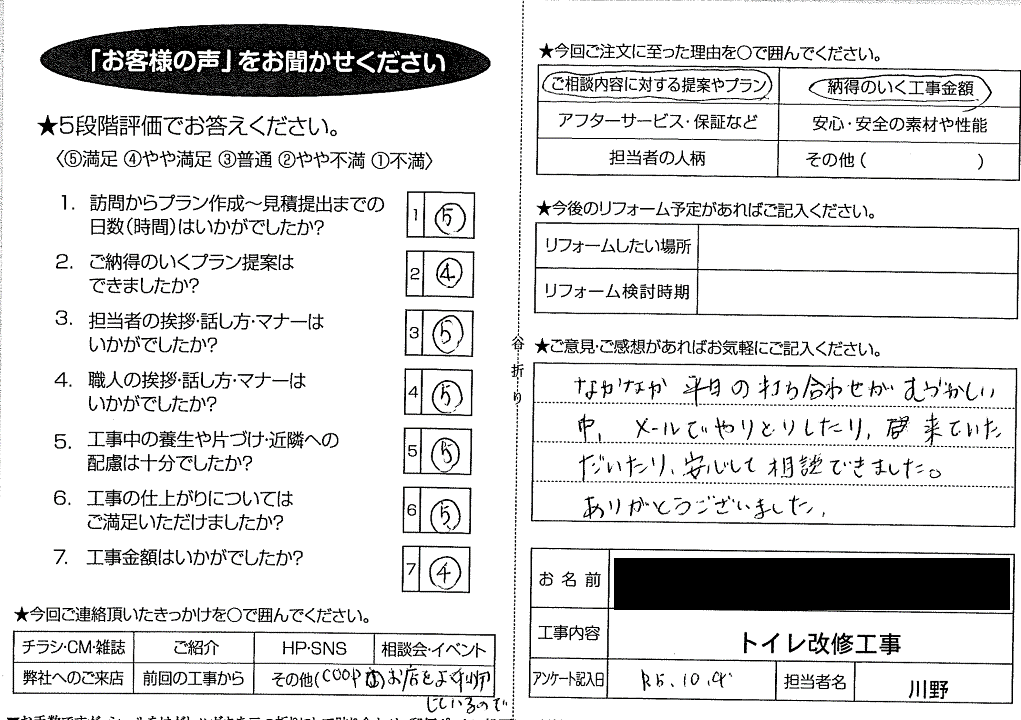 「お客様の声」をお聞かせください
★5段階評価でお答えください。
〈⑤満足 ④やや満足 ③普通 ②やや不満 ①不満〉
1. 訪問からプラン作成～見積提出までの
日数(時間)はいかがでしたか?
1 ⑤
2. ご納得のいくプラン提案は
できましたか?
2 ④
3. 担当者の挨拶・話し方・マナーは
いかがでしたか?
3 ⑤
4. 職人の挨拶・話し方・マナーは
いかがでしたか?
4 ⑤
5. 工事中の養生や片づけ・近隣への
配慮は十分でしたか?
5 ⑤
6. 工事の仕上がりについては
ご満足いただけましたか?
6 ⑤
7. 工事金額はいかがでしたか?
7 ④
★今回ご連絡頂いたきっかけを○で囲んでください。
チラシ・CM・雑誌 ご紹介 HP・SNS 相談会・イベント
弊社へのご来店 前回の工事から その他(COOP お店をよく利用
しているので
谷折り
★今回ご注文に至った理由を○で囲んでください。
ご相談内容に対する提案やプラン 納得のいく工事金額
アフターサービス・保証など 安心・安全の素材や性能
担当者の人柄 その他( )
★今後のリフォーム予定があればご記入ください。
リフォームしたい場所
リフォーム検討時期
★ご意見・ご感想があればお気軽にご記入ください。
なかなか 平日の打ち合わせが むづかしい
中、メールでやりとりしたり、 来ていた
だいたり、安心して 相談できました。
ありがとうございました。
お名前
工事内容 トイレ改修工事
アンケート記入日 R5.10.9 担当者名 川野